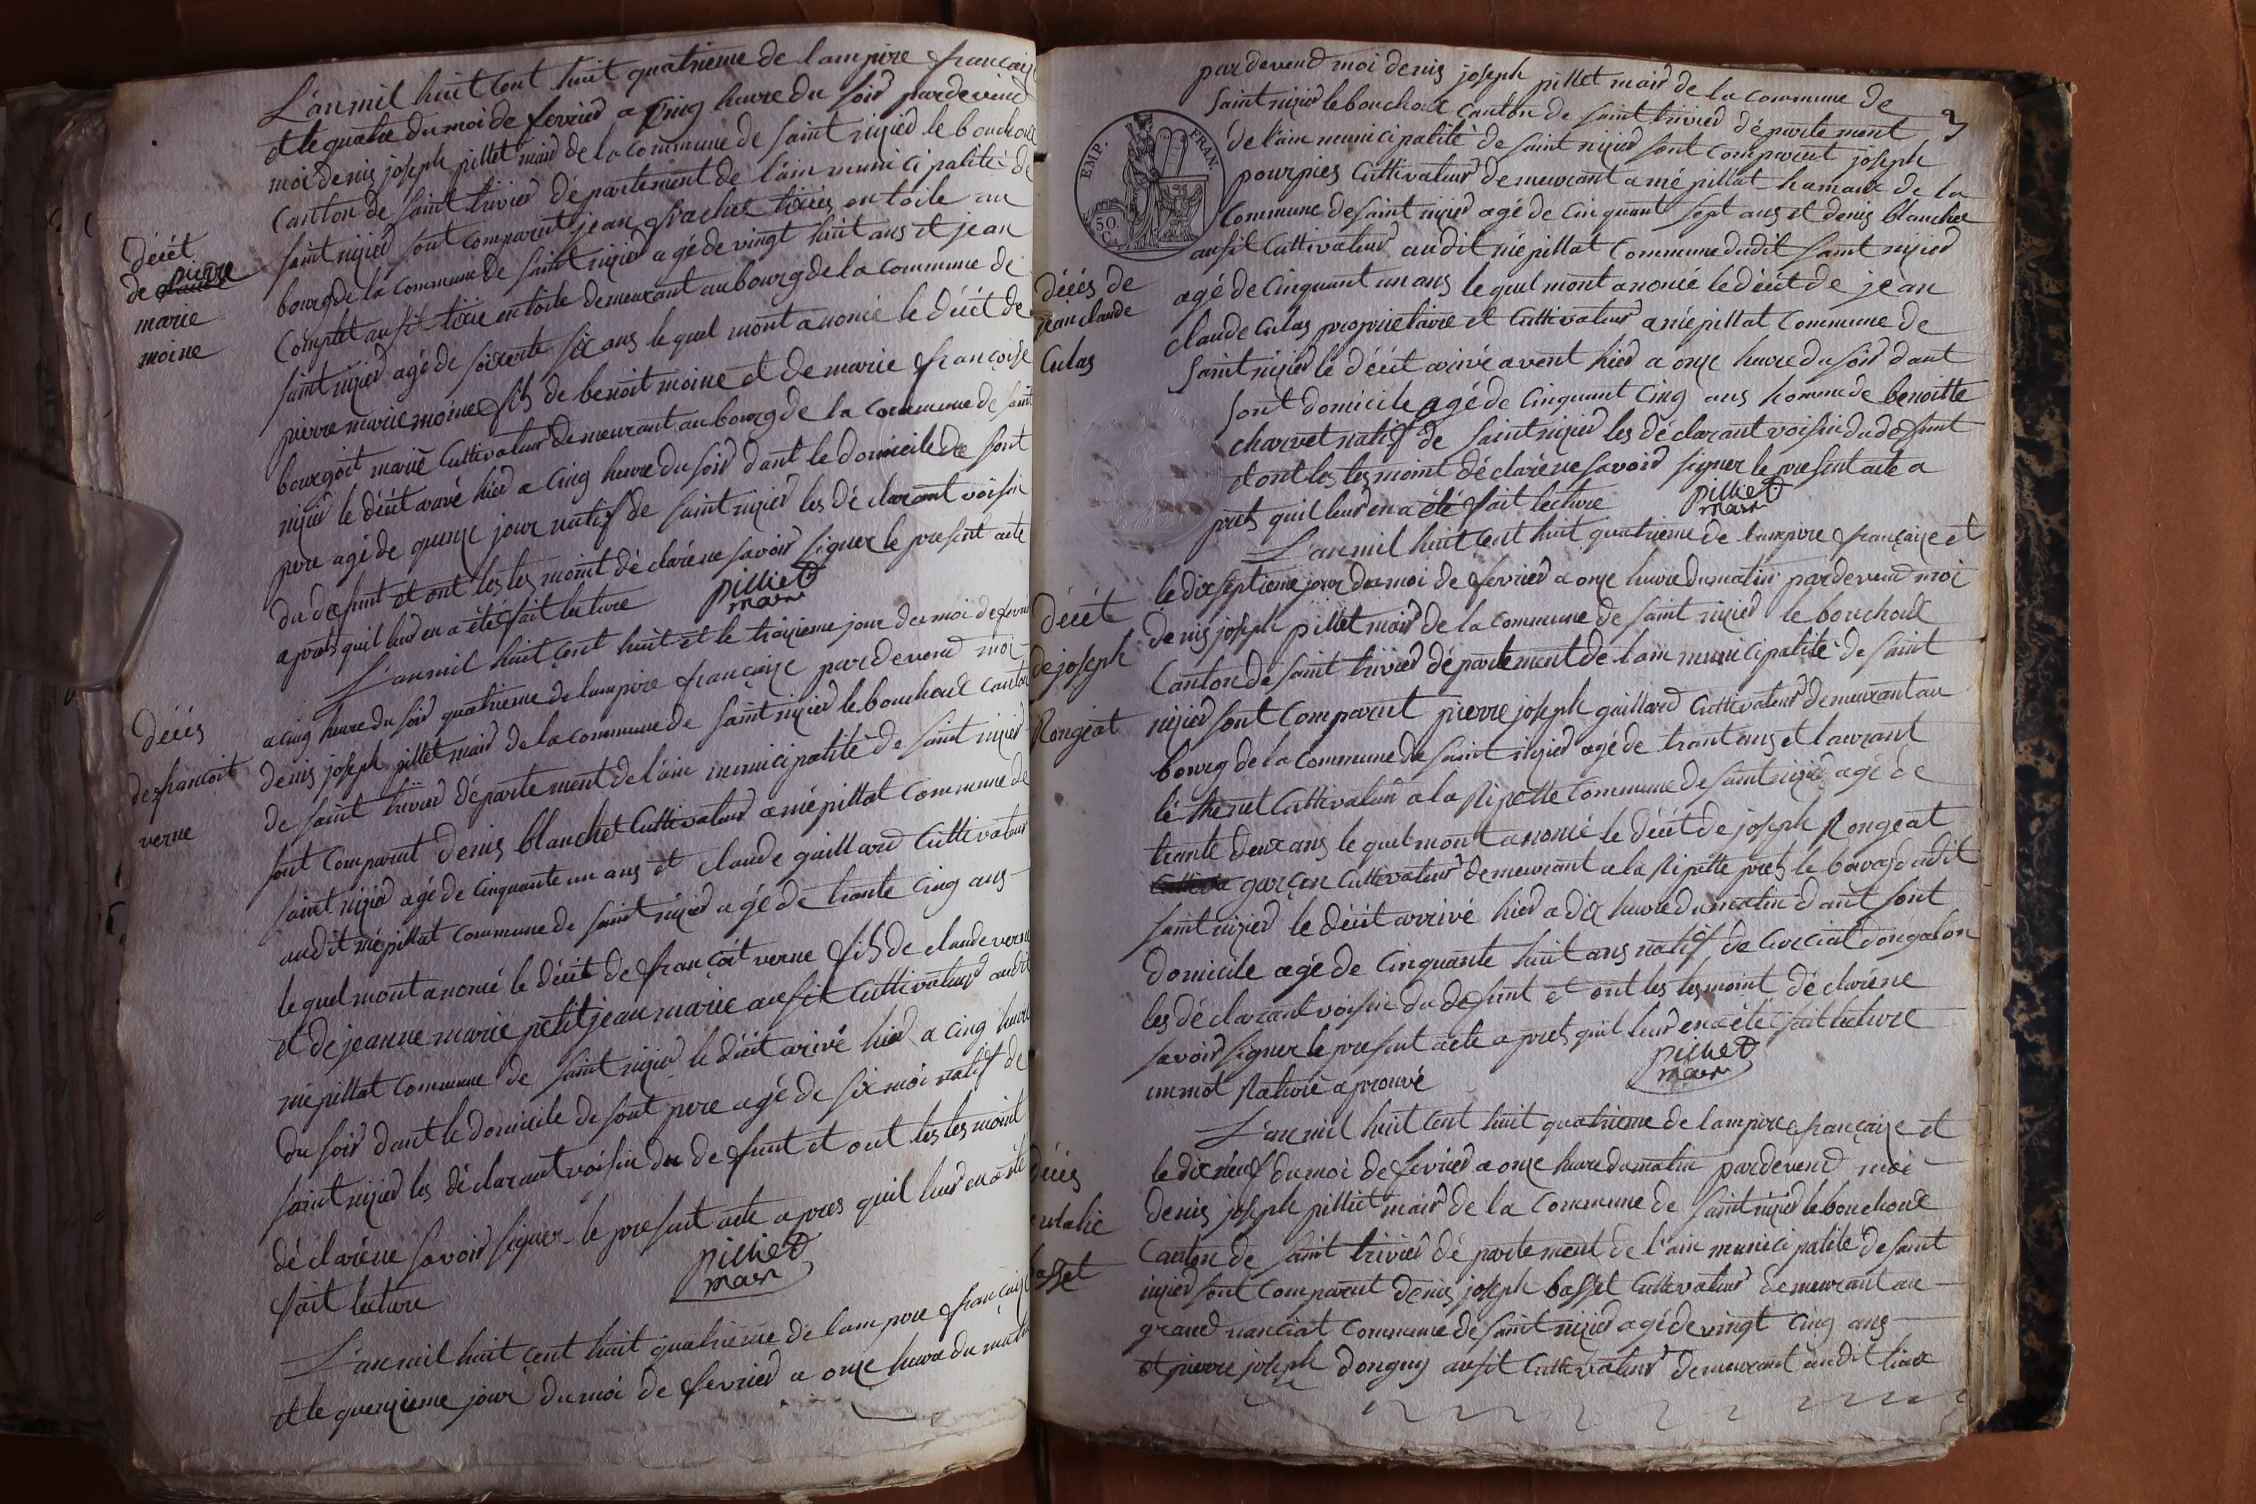 L'an mil huit cent huit quatrieme de lampire francaize
et le quatre du moi de fevrier a cinq heure du soir pardevend
moi denis joseph pillet mair de la commune de saint nizier le bouchoux
canton de saint trivier département de l'ain municipalité de
saint nizier sont comparut jean frachet tixier en toile au
bourg de la commune de saint nizier agé de vingt huit ans et jean
Complet ausit tixie en toile demeurant au bourg de la commune de
saint nizier agé de soixente six ans le quel mont anoncé le décet de
pierre marie moine fils de benoit moine et de marie françoise
bourgoit marié Cultivateur demeurant au bourg de la commune de saint
nizier le décét arivé hier a cinq heure du soir dant le domicile de sont
pere agé de quinze jour natif de saint nizier les déclarant voisin
du defunt et ont les tes moint déclaréne savoir signer le present acte
apres quil leur en a été fait lecture
pilliet
mair
décét
de claude pierre
marie
moine
L'an mil huit cent huit et le troizieme jour du moi de fevrier
a cinq heure du soir quatrieme de lampire françaize pardevend moi
denis joseph pillet mair de la commune de saint nizier le bouchoux canton
de saint trivier département de l'ain municipalité de saint nizier
sont comparut denis blanchet Cultivateur a mépillat commune de
saint nizier agé de cinquante un ans et claude gaillard Cultivateur
audit mépillat commune de saint nizier agé de trante cinq ans
le quel mont anoncé le décét de françoit verne fils de claude verne
et de jeanne marie petitjean marie ausit Cultivateur audit
mépillat commune de saint nizier le décét arivé hier a cinq heure
du soir dant le domicile de sont pere agé de six moi natif de
saint nizier les déclarant voisin du defunt et ont les tes moint
déclaréne savoir signer le present acte apres quil leur en a été
fait lecture
pilliet
mair
décés
de françoit
verne
L'an mil huit cent huit quatrieme de lampire françaize
et le quenzieme jour du moi de fevrier a onze heure du matin
3
pardevend moi denis joseph pillet mair de la commune de
saint nizier le bouchoux canton de saint trivier département
de l'ain municipalité de saint nizier sont comparut joseph
pourpies Cultivateur demeurant a mé pillat hamaux de la
commune de saint nizier agé de cinquant sept ans et denis blanchet
ausit Cultivateur audit mépillat commune dudit saint nizier
agé de Cinquant un ans le quel mont anoncé le décét de jean
claude Culas proprietaire et Cultivateur a mépillat commune de
saint nizier le décét arivé avent hier a onze heure du soir dant
sont domicile agé de Cinquant Cinq ans homme de benoitte
charvet natif de saint nizier les déclarant voisin du defunt
et ont les tes moint déclaréne savoir signer le present acte a
prets quil leur en a été fait lecture
pilliet
mair
EMP. FRAN.
50
C.
décés de
jean claude
Culas
L'an mil huit cent huit quatrieme de lampire françaize et
le dix septieme jour du moi de fevrier a onze heure du matin pardevend moi
denis joseph pillet mair de la commune de saint nizier le bouchoux
Canton de saint trivier département de l'ain municipalité de saint
nizier sont comparut pierre joseph gaillard Cultivateur demeurant au
bourg de la commune de saint nizier agé de trant ans et laurant
té Cultivateur a la Ripette commune de saint nizier agé de
trante deux ans le quel mont anoncé le décét de joseph Rongeat
garçon Cultivateur demeurant a la Ripette prets le bourg dudit
saint nizier le décét arrivé hier a dix heure du matin dant sont
domicile agé de Cinquante huit ans natif de Curciat dongalon
les déclarant voisin du defunt et ont les tes moint déclaréne
savoir signer le present acte a prets quil leur en a été fait lecture
un mot Rature aprouvé
pilliet
mair
décét
de joseph
Rongeat
L'an mil huit cent huit quatrieme de lampire françaize et
le dix neuf du moi de fevrier a onze heure du matin pardevend moi
denis joseph pilliet mair de la commune de saint nizier le bouchoux
Canton de saint trivier département de l'ain municipalité de saint
nizier sont comparut denis joseph basset Cultivateur demeurant au
grand nanciat commune de saint nizier agé de vingt cinq ans
et pierre joseph donguy ausit Cultivateur demeurant audit liax
décés
eulalie
basset